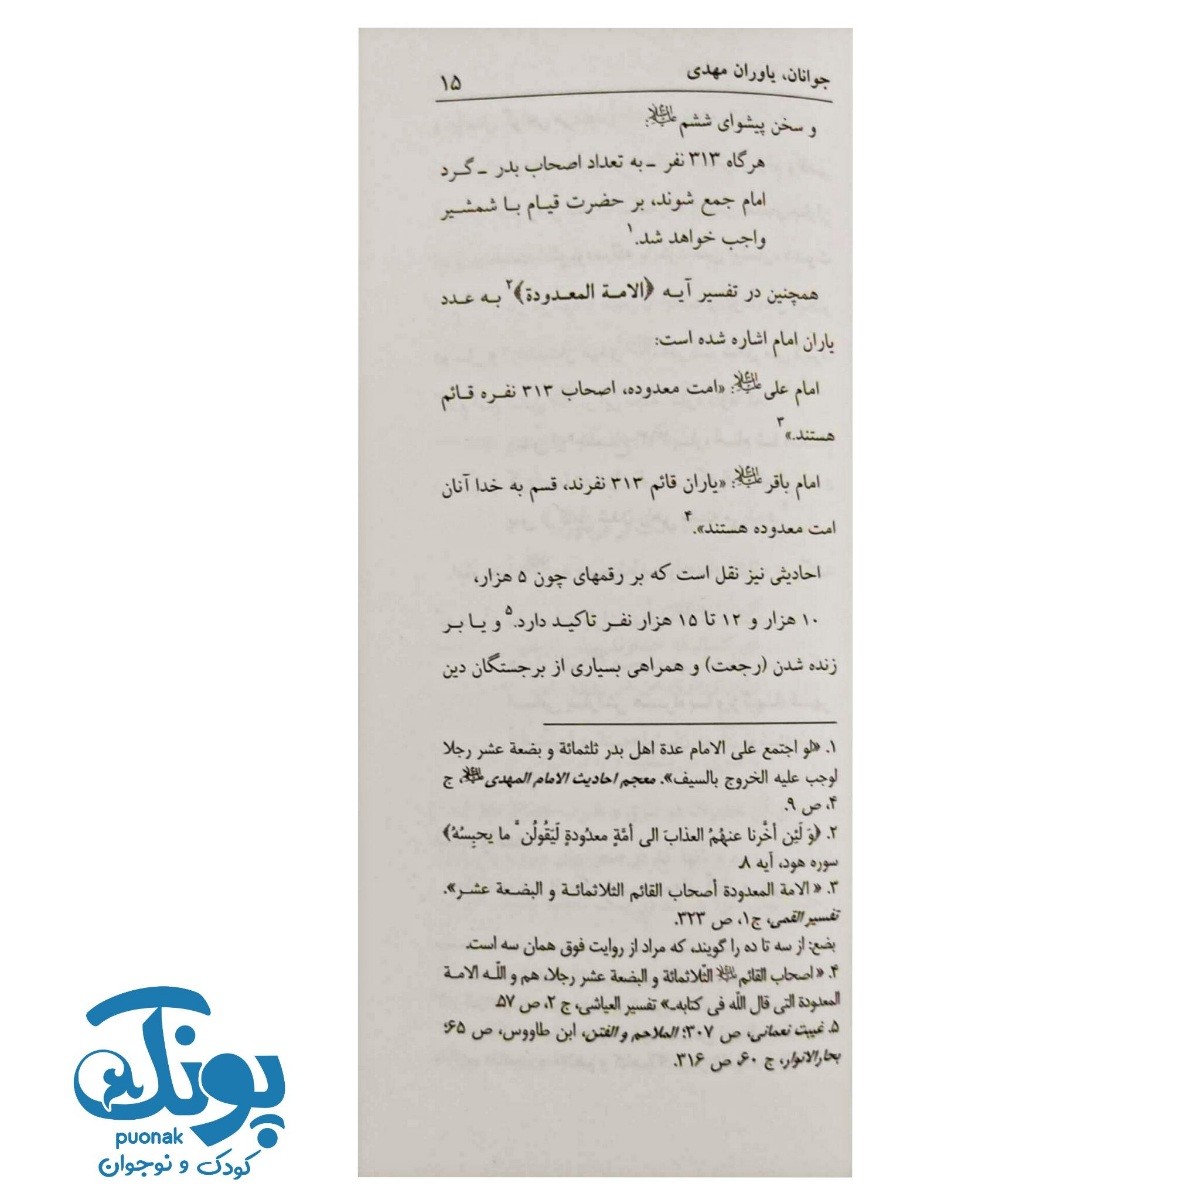 جوانان، یاوران مهدی ۱۵
و سخن پیشوای ششم علیه‌السلام:
هرگاه ۳۱۳ نفر ـ به تعداد اصحاب بدر ـ گرد
امام جمع شوند، بر حضرت قیام با شمشیر
واجب خواهد شد.۱
همچنین در تفسیر آیه ﴿الامة المعدودة﴾۲ به عدد
یاران امام اشاره شده است:
امام علی علیه‌السلام: «امت معدوده، اصحاب ۳۱۳ نفره قائم
هستند.»۳
امام باقر علیه‌السلام: «یاران قائم ۳۱۳ نفرند، قسم به خدا آنان
امت معدوده هستند».۴
احادیثی نیز نقل است که بر رقمهای چون ۵ هزار،
۱۰ هزار و ۱۲ تا ۱۵ هزار نفر تاکید دارد.۵ و یا بر
زنده شدن (رجعت) و همراهی بسیاری از برجستگان دین
۱. «لو اجتمع علی الامام عدة اهل بدر ثلثمائة و بضعة عشر رجلا
لوجب علیه الخروج بالسیف». معجم احادیث الامام المهدی علیه‌السلام، ج
۴، ص ۹.
۲. ﴿وَ لَئِن أخَّرنا عنهُمُ العذابَ الی أمَّةٍ معدُودةٍ لَیَقُولُن َّ ما یحبِسُهُ﴾
سوره هود، آیه ۸.
۳. « الامة المعدودة أصحاب القائم الثلاثمائة و البضعة عشر».
تفسیر القمی، ج۱، ص ۳۲۳.
بضع: از سه تا ده را گویند، که مراد از روایت فوق همان سه است.
۴. «اصحاب القائم علیه‌السلام الثّلاثمائة و البضعة عشر رجلا، هم و اللّه الامة
المعدودة التی قال اللّه فی کتابه.» تفسیر العیاشی، ج ۲، ص ۵۷.
۵. غیبت نعمانی، ص ۳۰۷؛ الملاحم و الفتن، ابن طاووس، ص ۶۵؛
بحارالانوار، ج ۶۰، ص ۳۱۶.
پونک
puonak
کودک و نوجوان